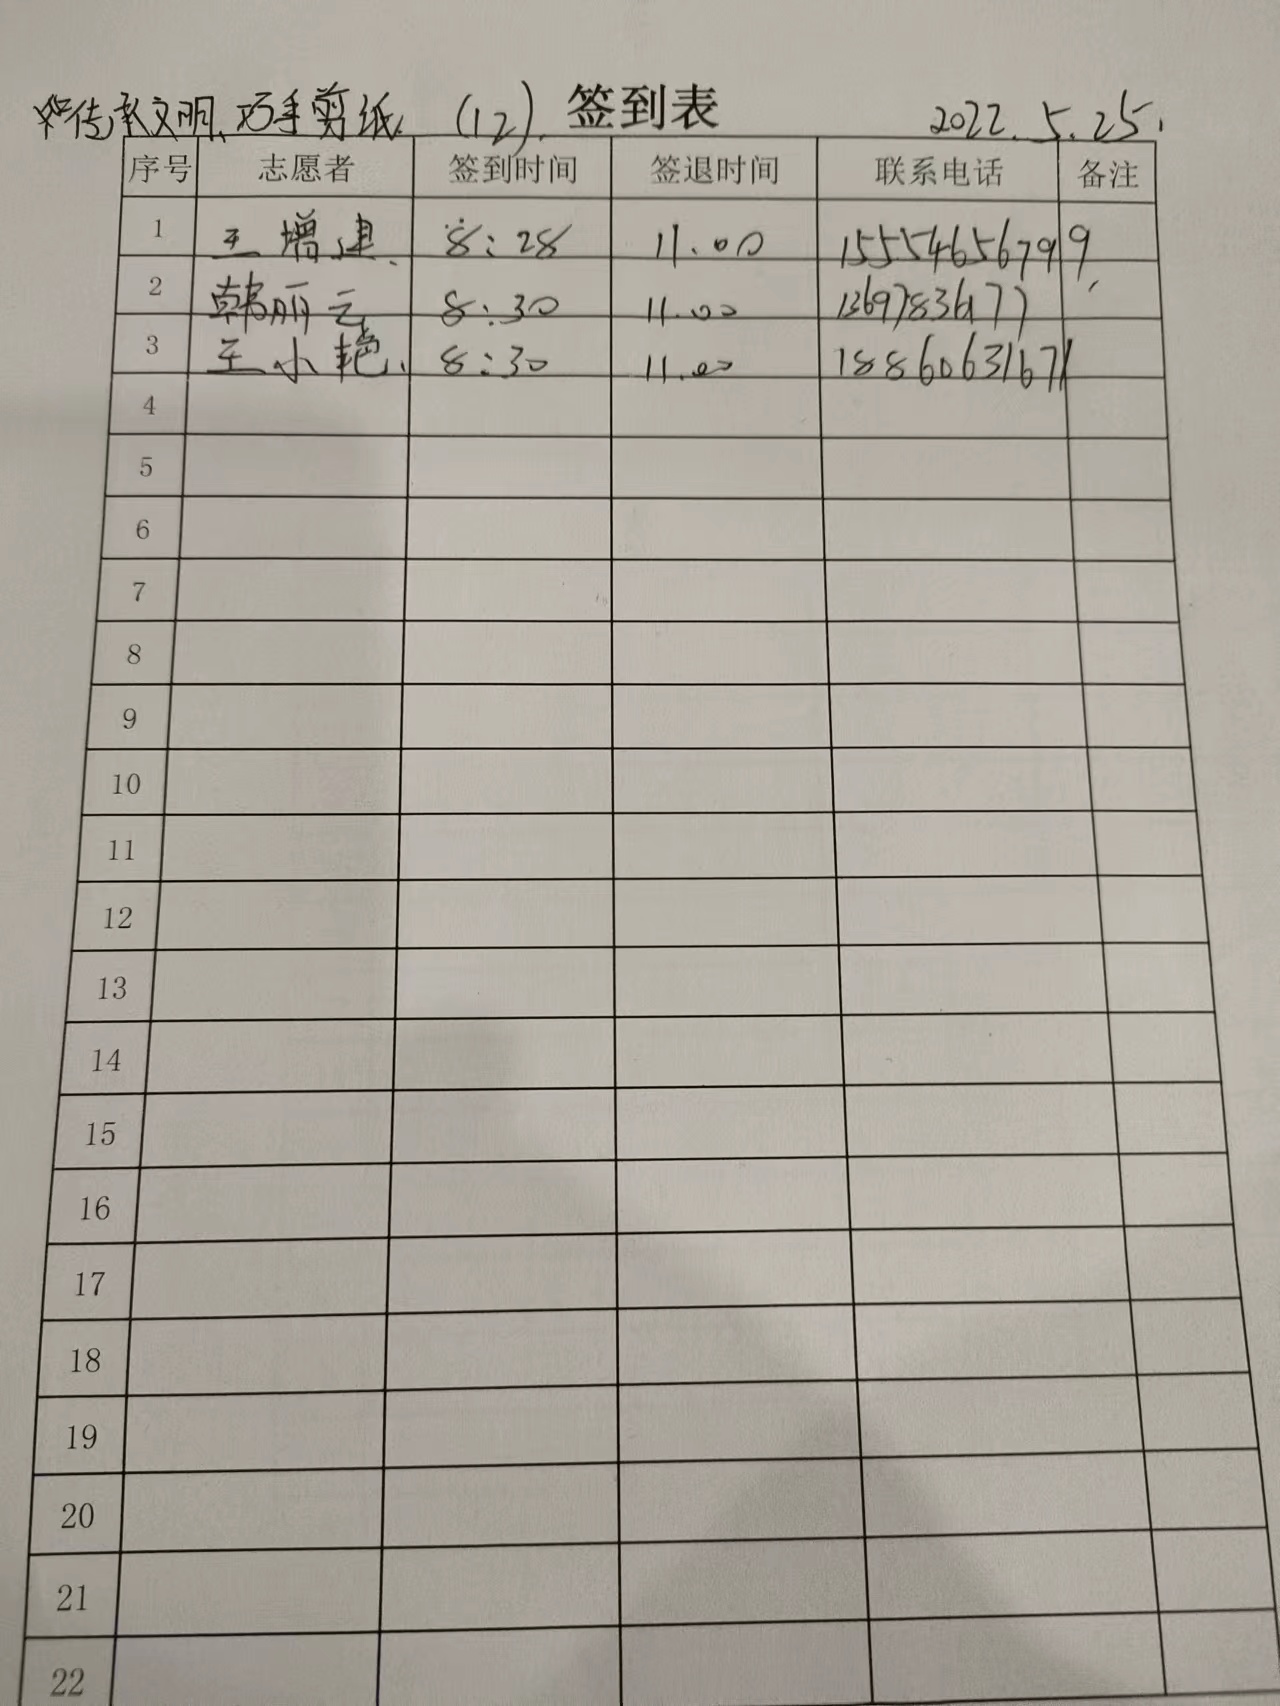 传承文明、巧手剪纸 (12). 签到表 2022.5.25.
序号 志愿者 签到时间 签退时间 联系电话 备注
1 王增建. 8:28 11.00 15554656799
2 韩丽云 8:30 11.00
3 王小艳. 8:30 11.00 18860631671
4
5
6
7
8
9
10
11
12
13
14
15
16
17
18
19
20
21
22